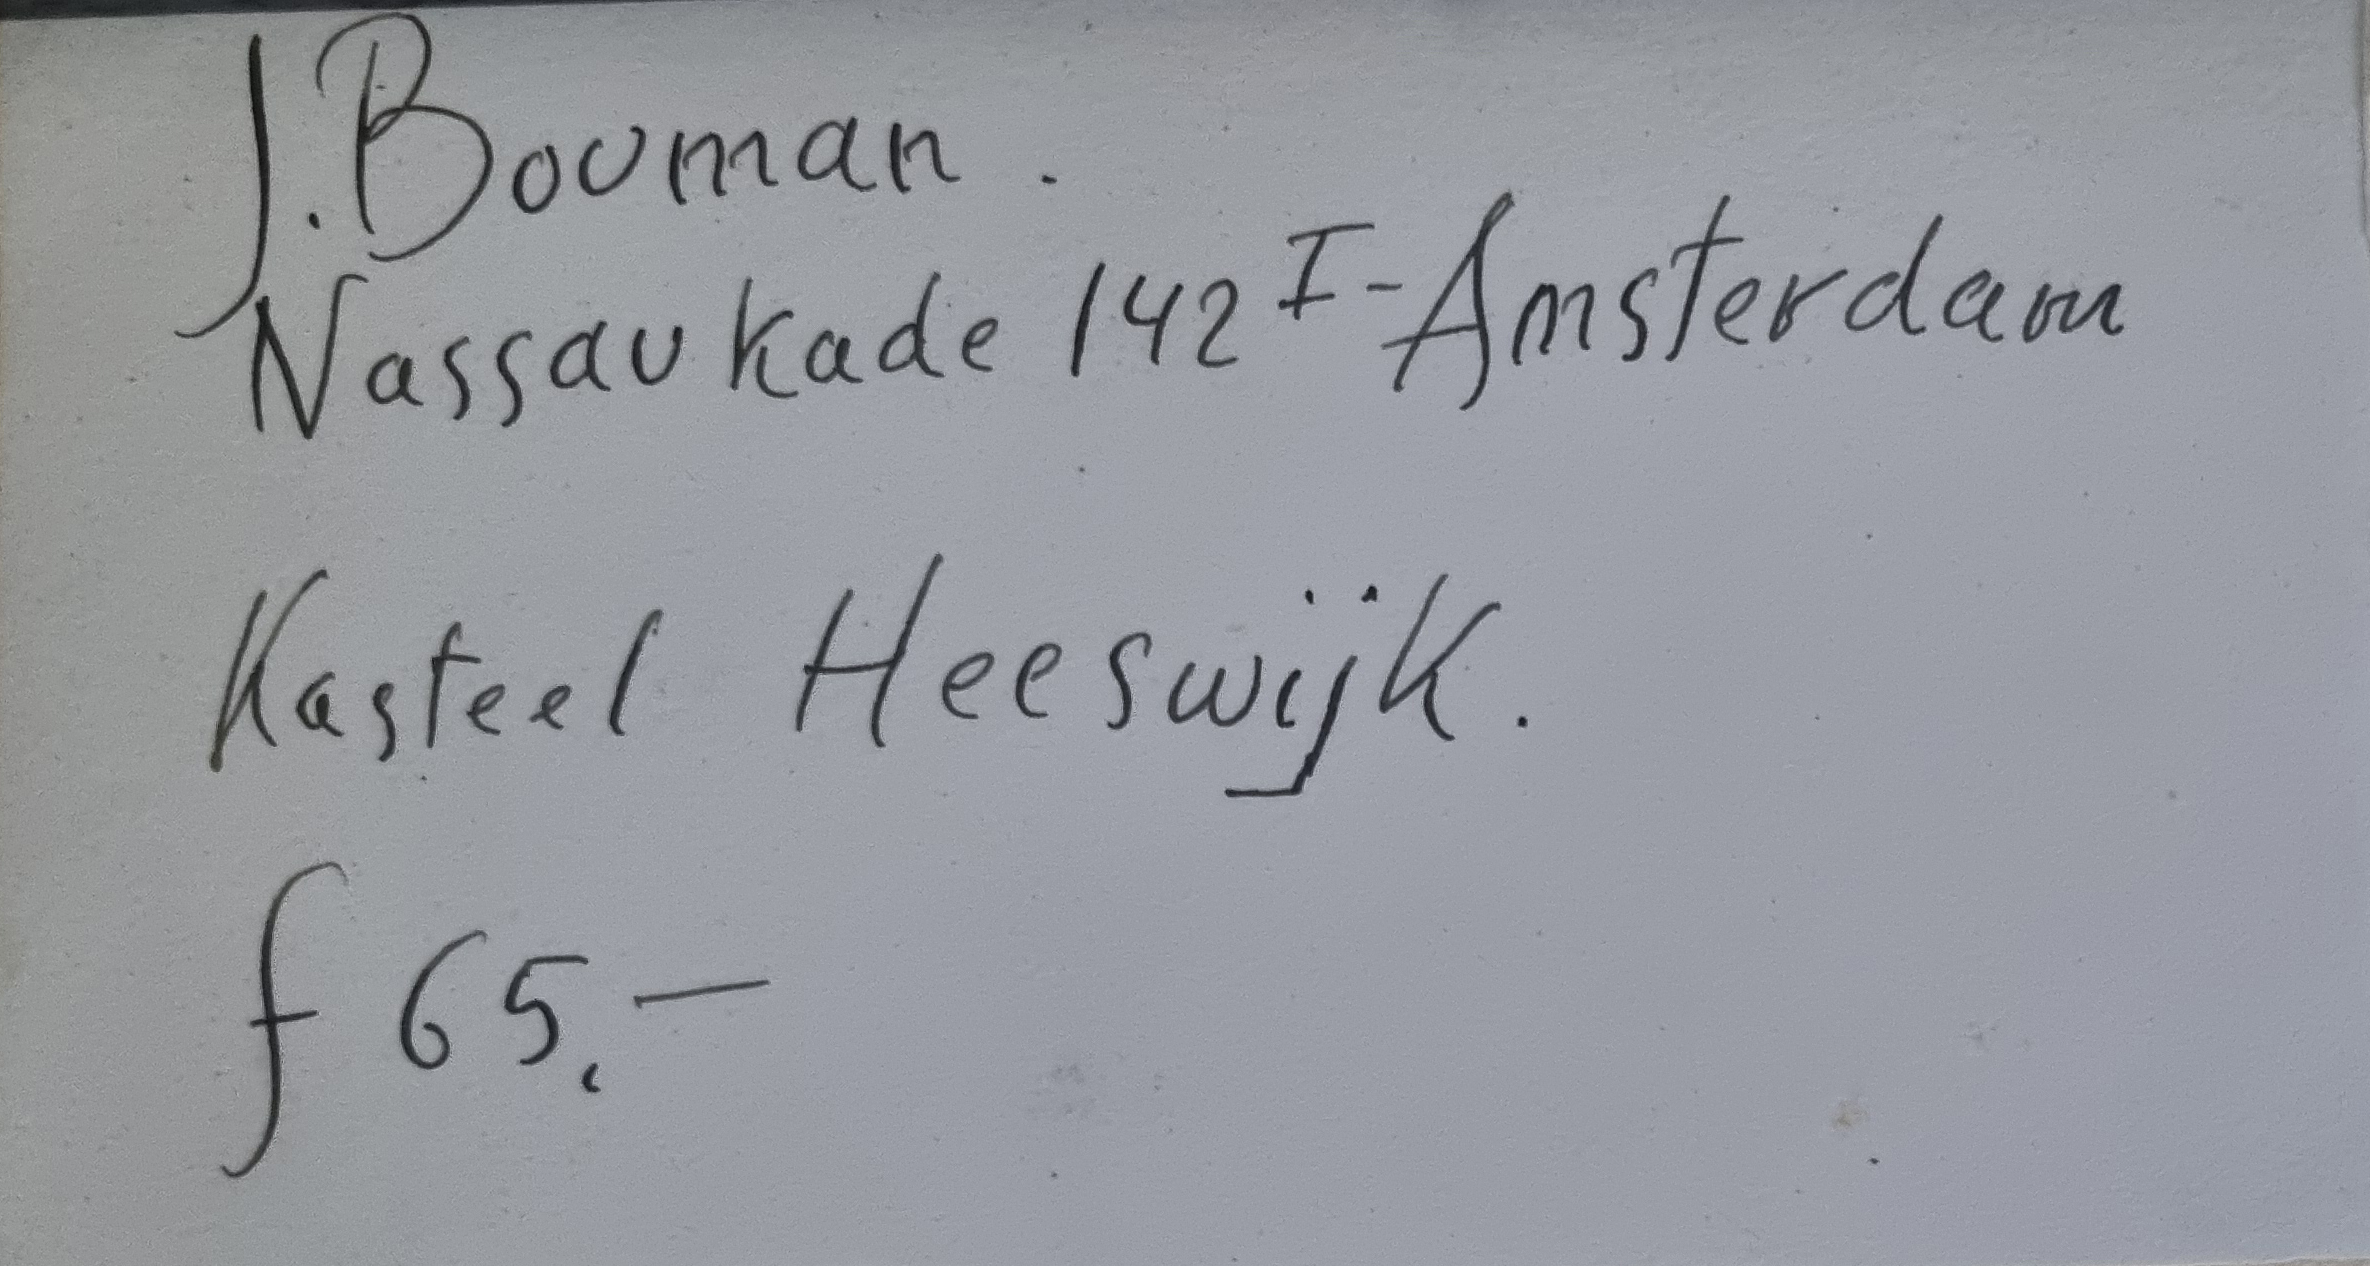 J. Bouman.
Nassaukade 142 I - Amsterdam
Kasteel Heeswijk.
f 65,-